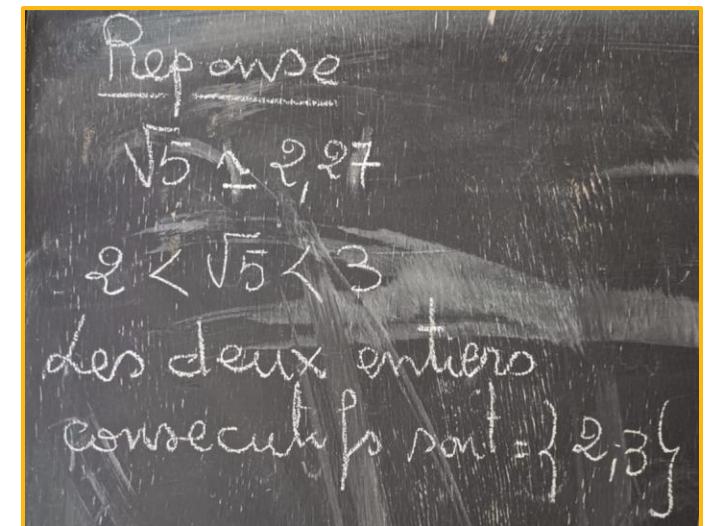 Reponse
√5 ≃ 2,27
2 < √5 < 3
Les deux entiers
consecutifs sont = {2;3}